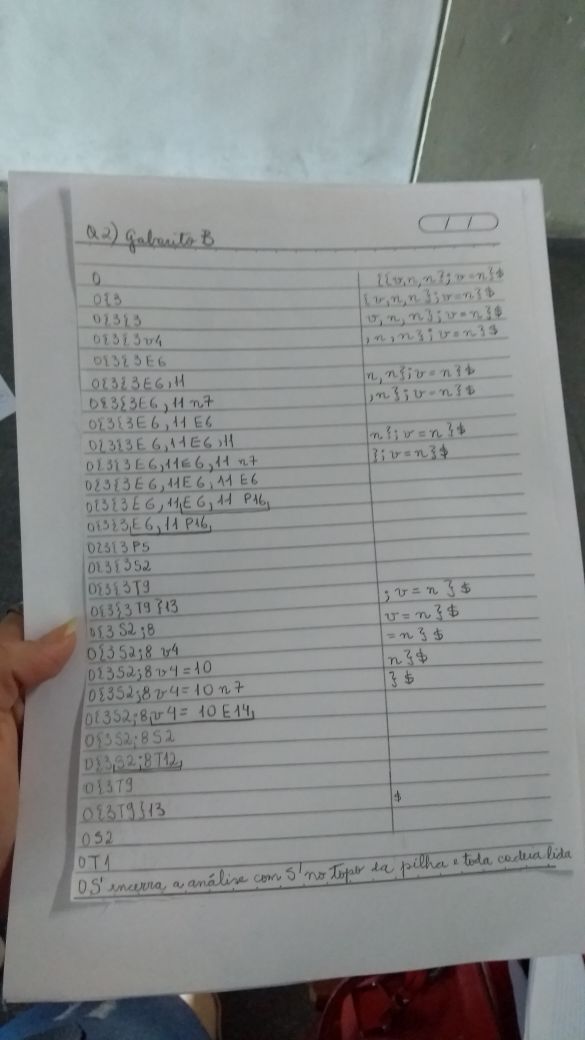 Q2) Gabarito B
/ /
0 {{v,n,n};v=n}$
0{3 {v,n,n};v=n}$
0{3{3 v,n,n};v=n}$
0{3{3v4 ,n,n};v=n}$
0{3{3E6
0{3{3E6,11 n,n};v=n}$
0{3{3E6,11 n7 ,n};v=n}$
0{3{3E6,11 E6
0{3{3E6,11E6,11 n};v=n}$
0{3{3E6,11E6,11 n7 };v=n}$
0{3{3E6,11E6,11 E6
0{3{3E6,11E6,11 P16
0{3{3E6,11 P16
0{3{3P5
0{3{3S2
0{3{3T9
0{3{3T9}13 ;v=n}$
0{3S2;8 v=n}$
0{3S2;8 v4 =n}$
0{3S2;8v4=10 n}$
0{3S2;8v4=10 n7 }$
0{3S2;8v4=10E14
0{3S2;8S2
0{3S2;8T12
0{3T9
0{3T9}13 $
0S2
0T1
0S' encerra a análise com S' no topo da pilha e toda cadeia lida